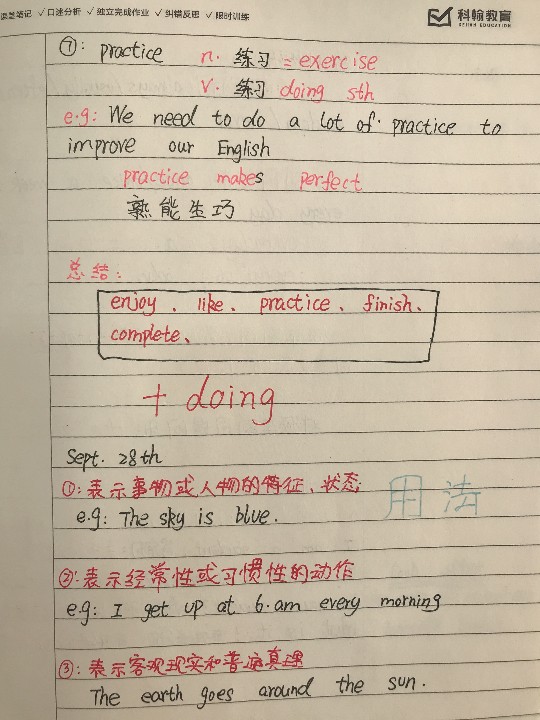 课堂笔记 ✓口述分析 ✓独立完成作业 ✓纠错反思 ✓限时训练
科翰教育
KEHAN EDUCATION
⑦: practice n. 练习 = exercise
v. 练习 doing sth
e.g: We need to do a lot of practice to
improve our English
practice makes perfect
熟能生巧
总结:
enjoy、like、practice、finish、
complete、
+ doing
Sept. 28th
①:表示事物或人物的特征、状态
用法
e.g: The sky is blue.
②:表示经常性或习惯性的动作
e.g: I get up at 6.am every morning
③:表示客观现实和普遍真理
The earth goes around the sun.